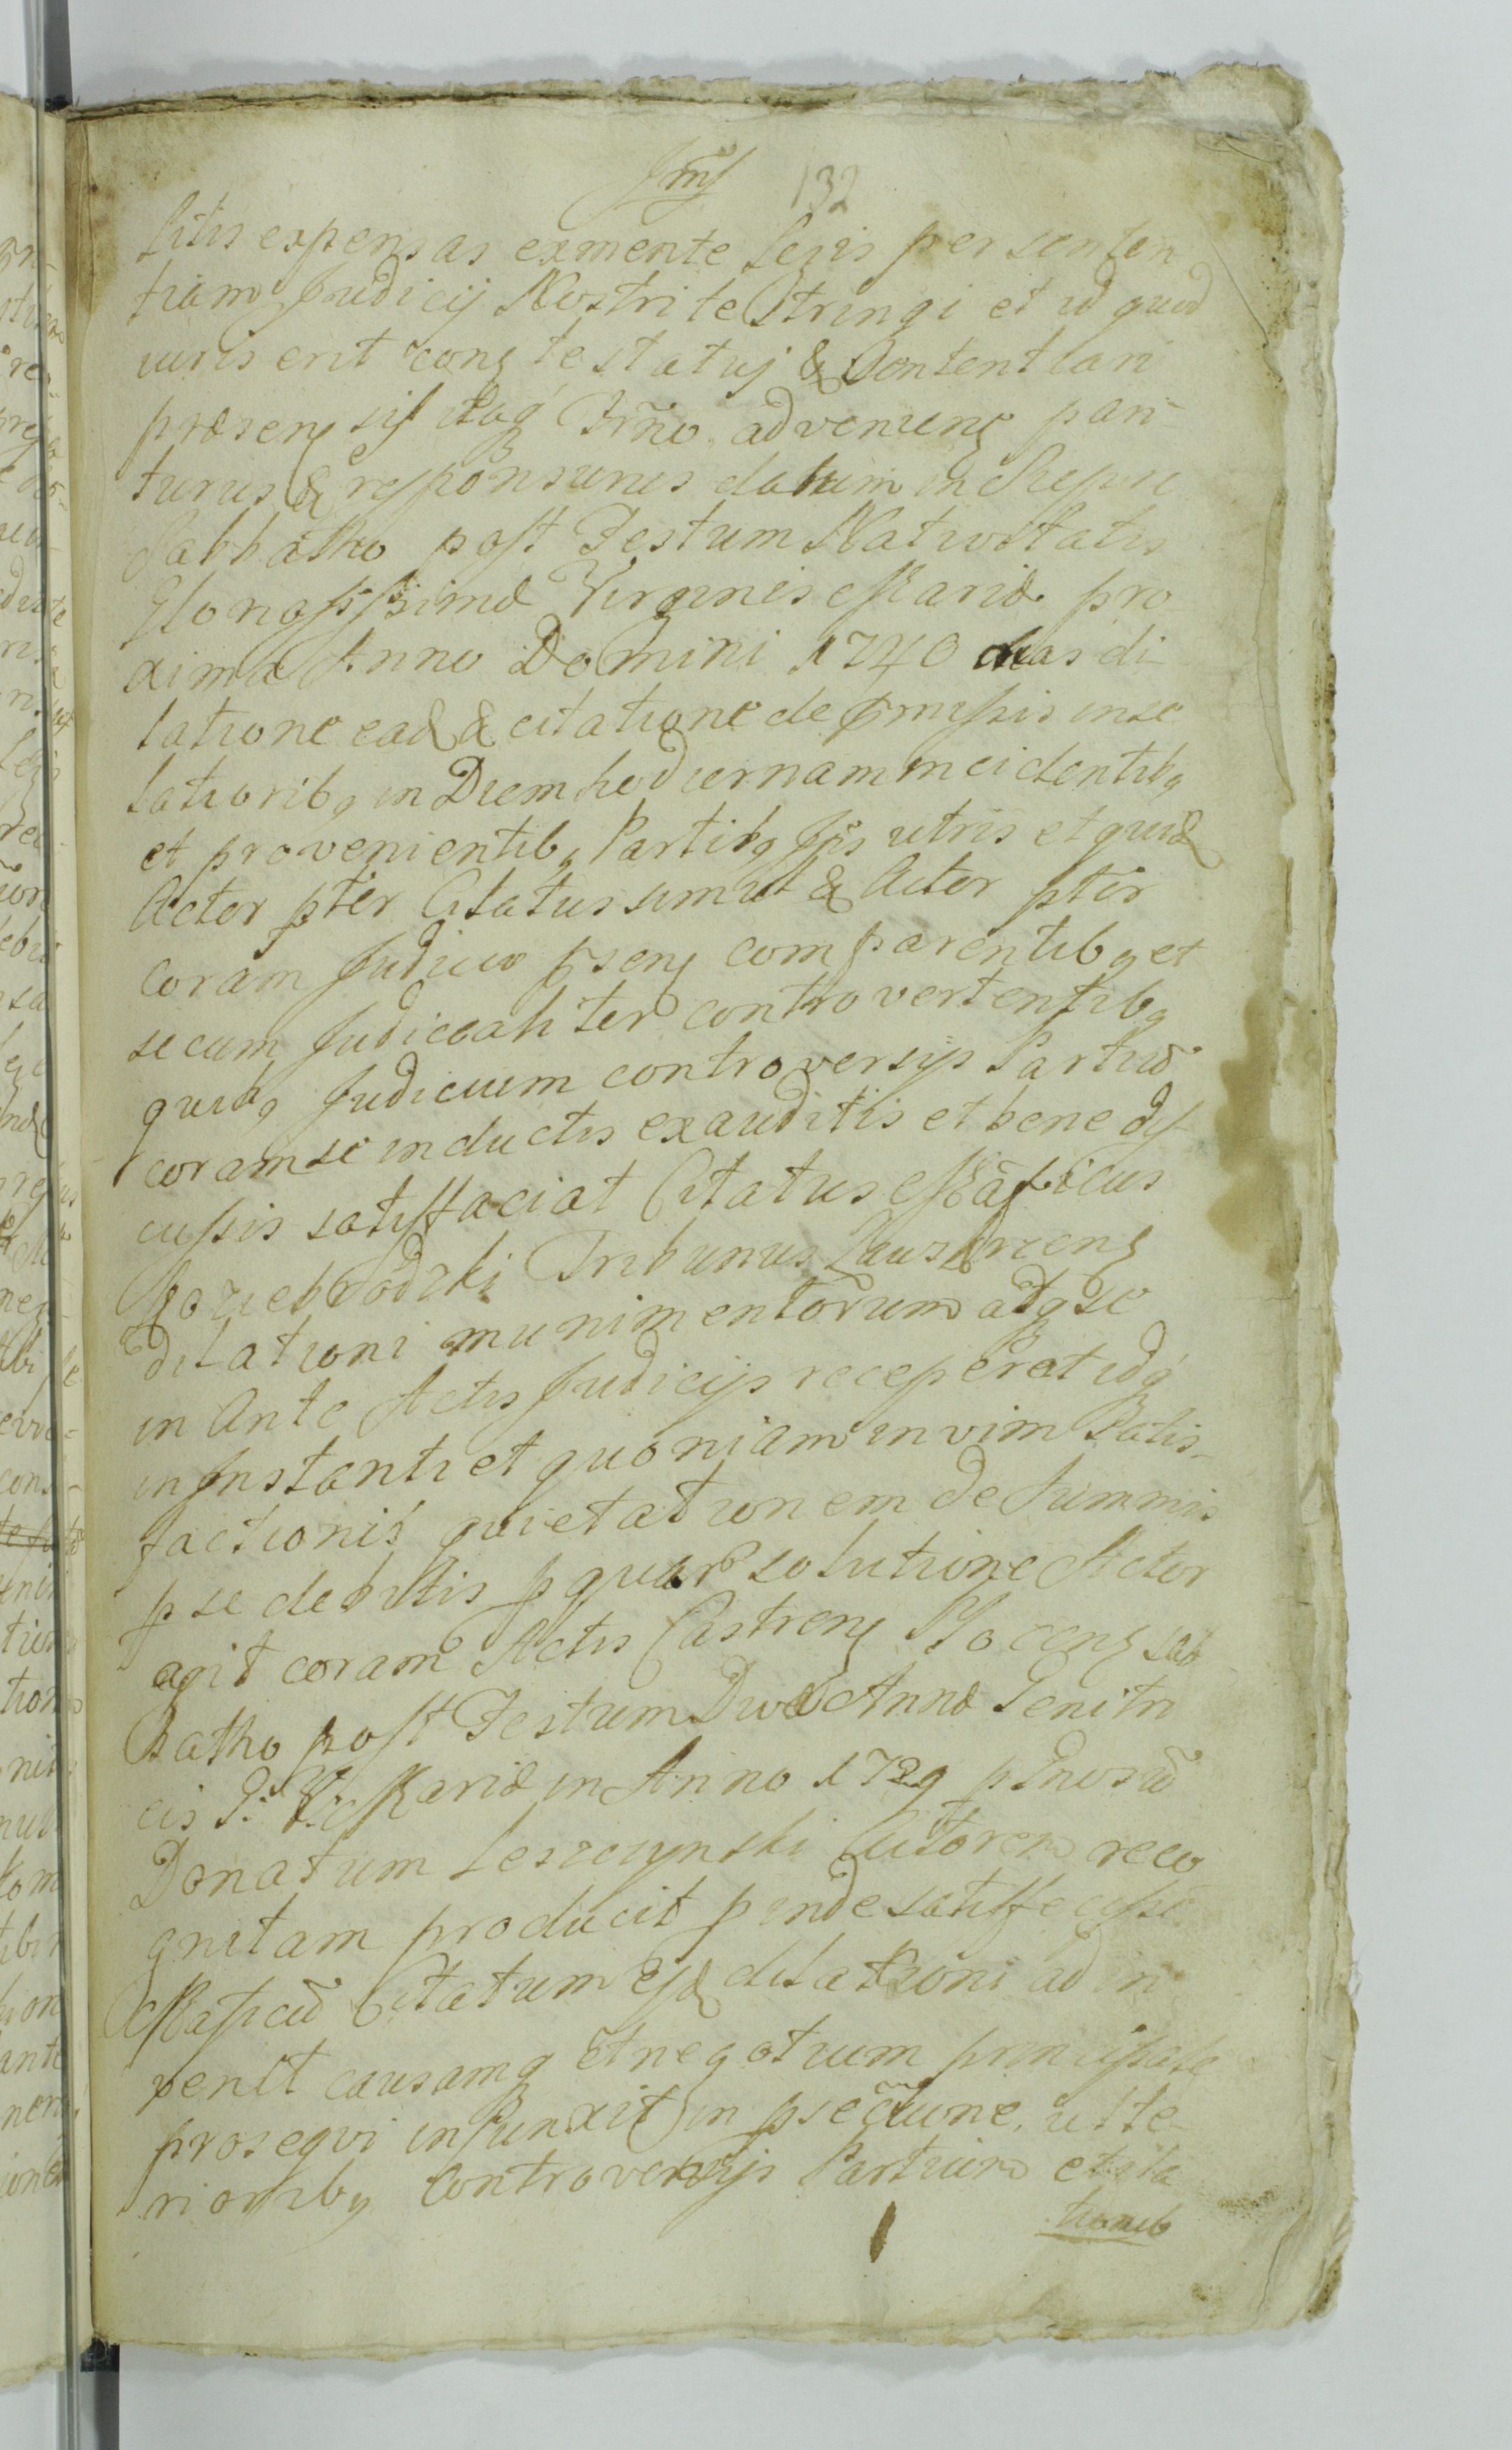 132
litis expensas exmente Legis per senten
tiam Judicij Nostri te Stringi et id quid
iuris erit cons testatus & Contentiari
præsens sis itaq Trno adveniens pari-
turus & responsurus datum in
Sabbatho post Festum Nativitatis
Gloriosissimæ Virginis Mariæ pro
xima Anno Domini 1740 has di
latione ead & citatione de pmissis in se
latiorib9 in Diem hodiernam incidentib9
et provenientib9 Partib9 Ips utris et quid
Actor pter Citatus simul & Actor pter
coram Judicio psens comparentib9 et
secum Judicealiter controvertentib9
quib9 Judicium controversijs Partiu
coram se inductis exauditis et bene dis
cussis satisfaciat Citatus Mağficus
Koziebrodzki Tribunus
dilationi munimentorum ad q se
in Ante Actis Judicijs receperat idq
in Instanti et quoniam in vim Satis-
factionis quietationem de Summis
p se debitis p quar solutione Actor
agit coram Actis Castrens Plocens sab
batho post Festum Divæ Annæ Genitri
cis G: V: Mariæ in Anno 1729 p Gnosu
Donatum Leszczynski Actorem reco
gnitam producit pinde satisfecisse
Magficu Citatum ejd dilationi ad in
venit causamq et negotium principale
prosequi injunxit in psecuone ulte
riorib9 Controversijs Partium et ila
tionib